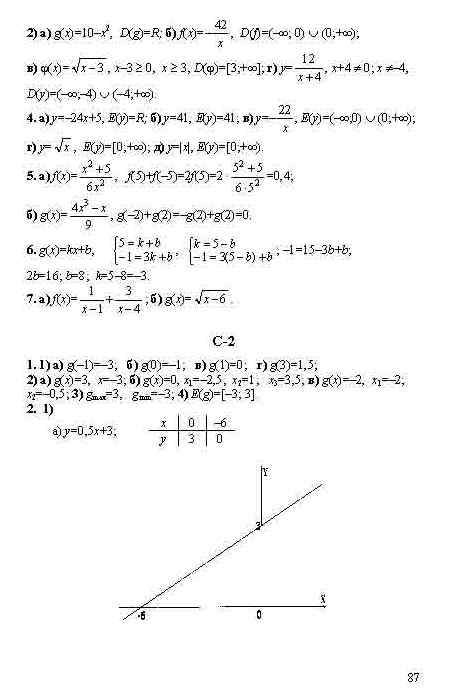 2) а) g(x)=10–x², D(g)=R; б) f(x)=–42/x, D(f)=(–∞; 0) ∪ (0;+∞);
в) φ(x)=√(x–3), x–3≥0, x≥3, D(φ)=[3;+∞]; г) y=12/(x+4), x+4≠0; x≠–4,
D(y)=(–∞;–4) ∪ (–4;+∞).
4. а) y=–24x+5, E(y)=R; б) y=41, E(y)=41; в) y=–22/x, E(y)=(–∞;0) ∪ (0;+∞);
г) y=√x, E(y)=[0;+∞); д) y=|x|, E(y)=[0;+∞).
5. а) f(x)=(x²+5)/(6x²), f(5)+f(–5)=2f(5)=2·(5²+5)/(6·5²)=0,4;
б) g(x)=(4x³–x)/9, g(–2)+g(2)=–g(2)+g(2)=0.
6. g(x)=kx+b, {5=k+b {–1=3k+b, {k=5–b {–1=3(5–b)+b; –1=15–3b+b;
2b=16; b=8; k=5–8=–3.
7. а) f(x)=1/(x–1)+3/(x–4); б) g(x)=√(x–6).
С-2
1. 1) а) g(–1)=–3; б) g(0)=–1; в) g(1)=0; г) g(3)=1,5;
2) а) g(x)=3, x=–3; б) g(x)=0, x₁=–2,5, x₂=1; x₃=3,5; в) g(x)=–2, x₁=–2;
x₂=–0,5; 3) gmax=3, gmin=–3; 4) E(g)=[–3; 3]
2. 1)
а) y=0,5x+3;
x 0 –6
y 3 0
Y
3
X
-6 0
87